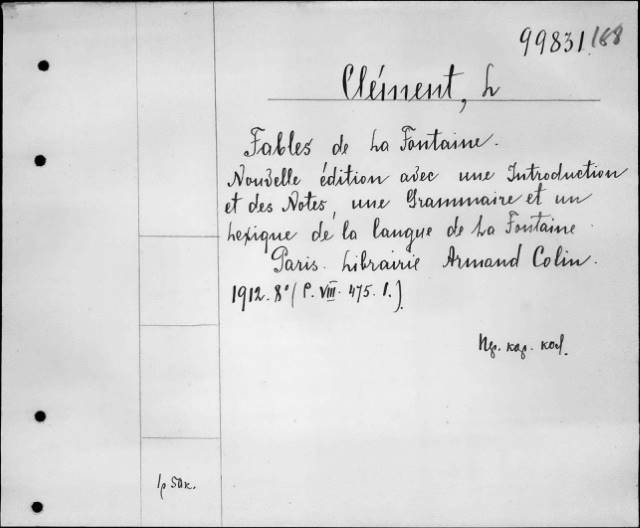 99831/188
Clément, L
Fables de La Fontaine.
Nouvelle édition avec une Introduction
et des Notes, une Grammaire et un
Lexique de la langue de La Fontaine.
Paris. Librairie Armand Colin.
1912. 8° (P. VIII. 475. 1.)
1р 50к.